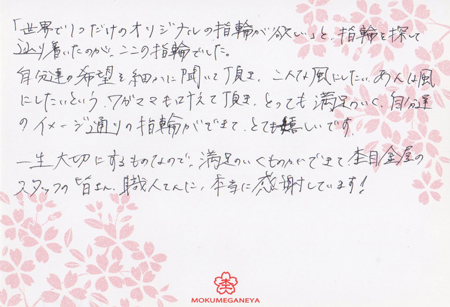 「世界で1つだけのオリジナルの指輪が欲しい」と、指輪を探して
辿り着いたのが、ここの指輪でした。
自分達の希望を細かに聞いて頂き、こんな風にしたい、あんな風
にしたいという、ワガママも叶えて頂き、とっても満足のいく、自分達
のイメージ通りの指輪ができて、とても嬉しいです。
一生大切にするものなので、満足のいくものができて、杢目金屋の
スタッフの皆さん、職人さんに、本当に感謝しています!
MOKUMEGANEYA